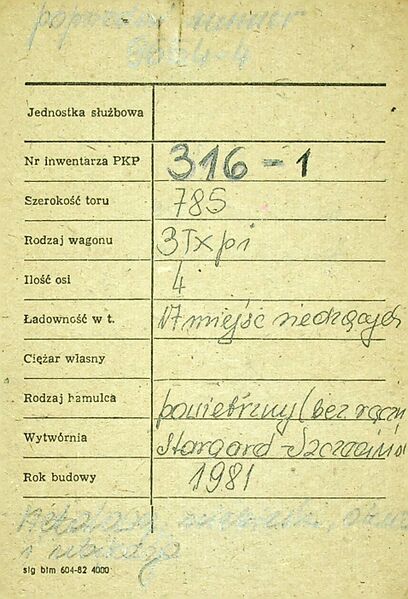 poprzedni numer
9664-4
Jednostka służbowa
Nr inwentarza PKP 316-1
Szerokość toru 785
Rodzaj wagonu 3Txpi
Ilość osi 4
Ładowność w t. 17 miejsc siedzących
Ciężar własny
Rodzaj hamulca powietrzny (bez ręczn
Wytwórnia Stargard-Szczeciń
Rok budowy 1981
i
sig btm 604-82 4000